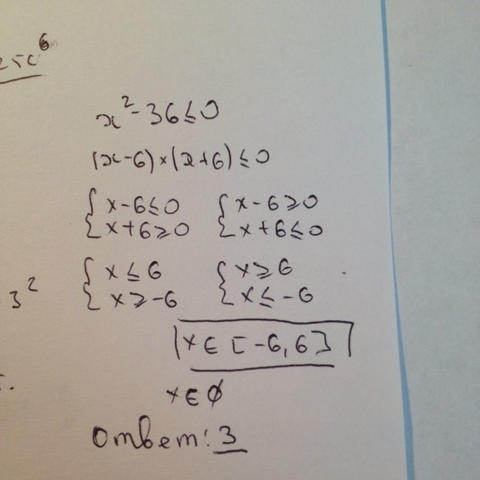 25x⁶
x²-36≤0
(x-6)×(x+6)≤0
{x-6≤0 {x-6≥0
{x+6≥0 {x+6≤0
{x≤6 {x≥6
3² {x≥-6 {x≤-6
x∈[-6,6]
x∈∅
Ответ: 3